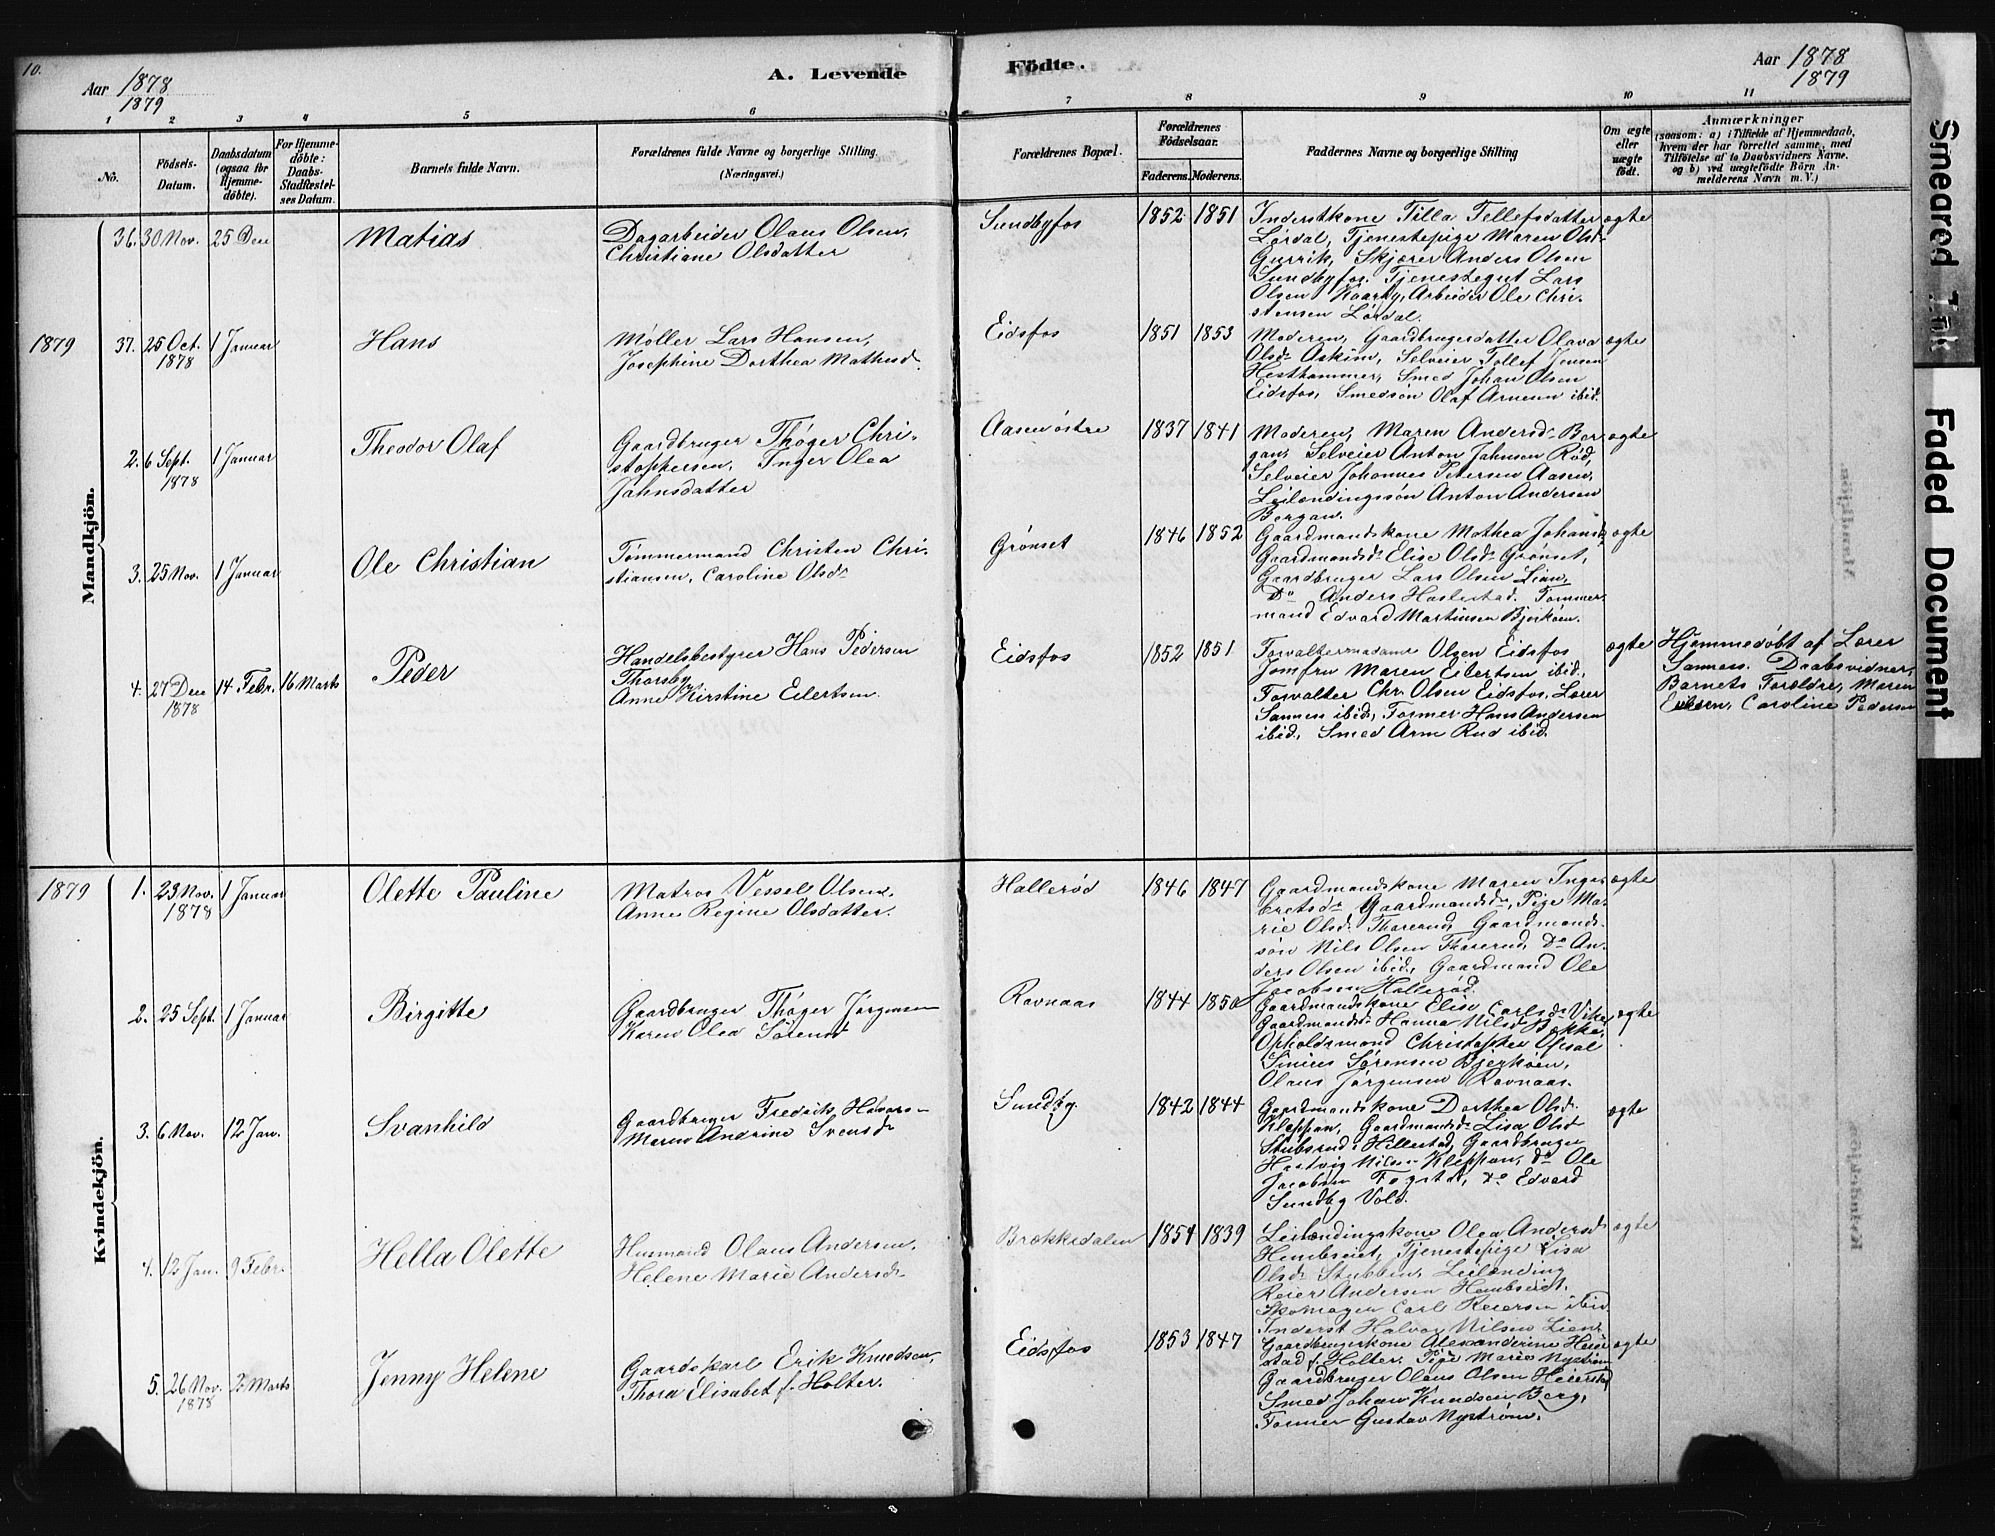 10.
Aar 1878
1879
A. Levende
Födte.
Aar 1878
1879
1 2 3 4 5 6 7 8 9 10 11
No.
Födsels-
Datum.
Daabsdatum
(ogsaa for
Hjemme-
döbte).
For Hjemme-
döbte:
Daabs-
Stadfæstel-
ses Datum.
Barnets fulde Navn.
Forældrenes fulde Navne og borgerlige Stilling.
(Næringsvei.)
Forældrenes Bopæl.
Forældrenes
Födselsaar.
Faderens. Moderens.
Faddernes Navne og borgerlige Stilling
Om ægte
eller
uægte
født.
Anmærkninger
(saasom: a) i Tilfælde af Hjemmedaab,
hvem der har forrettet samme, med
Tilføielse af to Daabsvidners Navne.
og b) ved uægtefödte Börn An-
melderens Navn m. V.)
Mandkjön.
36. 30 Nov. 25 Dec
Matias
Dagarbeider Olaus Olsen,
Christiane Olsdatter
Sundbyfos
1852 1851
Inderstkone Tilla Tellefsdatter
Lørdal, Tjenestepige Maren Olsd
Gurrik, Skjærer Anders Olsen
Sundbyfos. Tjenestegut Lars
Olsen Kaarby, Arbeider Ole Chri-
stensen Lørdal.
ægte
1879
37. 25 Oct. 1 Januar
1878
Hans
Møller Lars Hansen,
Josephine Dorthea Mathisd.
Eidsfos
1851 1853
Moderen, Gaardbrugerdatter Olava
Olsd. Askim, Selveier Tollef Jensen
Hesthammer, Smed Johan Olsen
Eidsfos, Smedsøn Olaf Arnesen ibid.
ægte
2. 6 Sept. 1 Januar
1878
Theodor Olaf
Gaardbruger Thøger Chri-
stophersen, Inger Olea
Jahnsdatter
Aasen østre
1837 1841
Moderen, Maren Andersd. Ber-
gan, Selveier Anton Jahnsen Rød,
Selveier Johannes Petersen Aasen,
Leilændingssøn Anton Andersen
Bergan.
ægte
3. 25 Nov. 1 Januar
Ole Christian
Tømmermand Christen Chri-
stiansen, Caroline Olsd.
Grønset
1846 1852
Gaardmandskone Mathea Johansd.
Gaardmandsd. Elise Olsd. Grønset,
Gaardbruger Lars Olsen Lian,
Do Anders Haslestad. Tømmer-
mand Edvard Martinsen Bjerkøen.
ægte
4. 27 Dec 14 Febr. 16 Marts
1878
Peder
Handelsbestyrer Hans Pedersen
Thorsby
Anne Kirstine Eilertsen.
Eidsfos
1852 1851
Forvaltermadame Olsen Eidsfos
Jomfru Maren Eilertsen ibid.
Forvalter Chr. Olsen Eidsfos, Lærer
Sannæss ibid, Former Hans Andersen
ibid, Smed Arm Rud ibid.
ægte
Hjemmedøbt af Lærer
Sannæss. Daabsvidner,
Barnets Forældre, Maren
Caroline Pedersen
Kvindekjön.
1879
1. 23 Nov. 1 Januar
1878
Olette Pauline
Matros Vessel Olsen.
Anne Regine Olsdatter.
Hallerød
1846 1847
Gaardmandskone Maren Inge-
bretsd. Gaardmandsd., Pige Ma-
rie Olsd. Thorerud, Gaardmands-
søn Nils Olsen Thorerud, Do An-
ders Olsen ibid, Gaardmand Ole
Jacobsen Hallerød.
ægte
2. 25 Sept. 1 Januar
Birgitte
Gaardbruger Thøger Jørgensen
Karen Olea Sørensd
Ravnaas
1844 1850
Gaardmandskone Elise Carlsd. Vike
Gaardmandsd. Hanna Nilsd. Bakke,
Opholdsmand Christopher
Sørensen Bjerkøen,
Olaus Jørgensen Ravnaas.
ægte
3. 6 Nov. 12 Jan.
Svanhild
Gaardbruger Fredrik Halvors-
Maren Andrine Svensd.
Sundby
1842 1844
Gaardmandskone Dorthea Olsd.
Kleppan, Gaardmandsd. Lisa Olsd.
Stubsrud i Hillestad, Gaardbruger
Hartvig Nilsen Kleppan, do Ole
Jacobsen Togstad, do Edvard
Sundby Vold.
ægte
4. 12 Jan. 9 Febr.
Hella Olette
Husmand Olaus Andersen.
Helene Marie Andersd.
Brækkedalen
1854 1839
Leilændingskone Olea Andersd.
Hembseidt, Tjenestepige Lisa
Olsd. Stubben, Leilænding
Reier Andersen Hembseidt.
Skomager Carl Reiersen ibid
Inderst Halvor Nilsen Lien.
ægte
5. 26 Nov. 2 Marts
1878
Jenny Helene
Gaardskarl Erik Knudsen,
Thora Elisabet f. Holter.
Eidsfos
1853 1847
Gaardbrugerkone Alexanderine Heier-
stad f. Holter. Pige Marie Nystrøm
Gaardbruger Olaus Olsen Heierstad
Smed Johan Knudsen Berg,
Former Gustav Nystrøm.
ægte
Smeared Ink
Faded Document